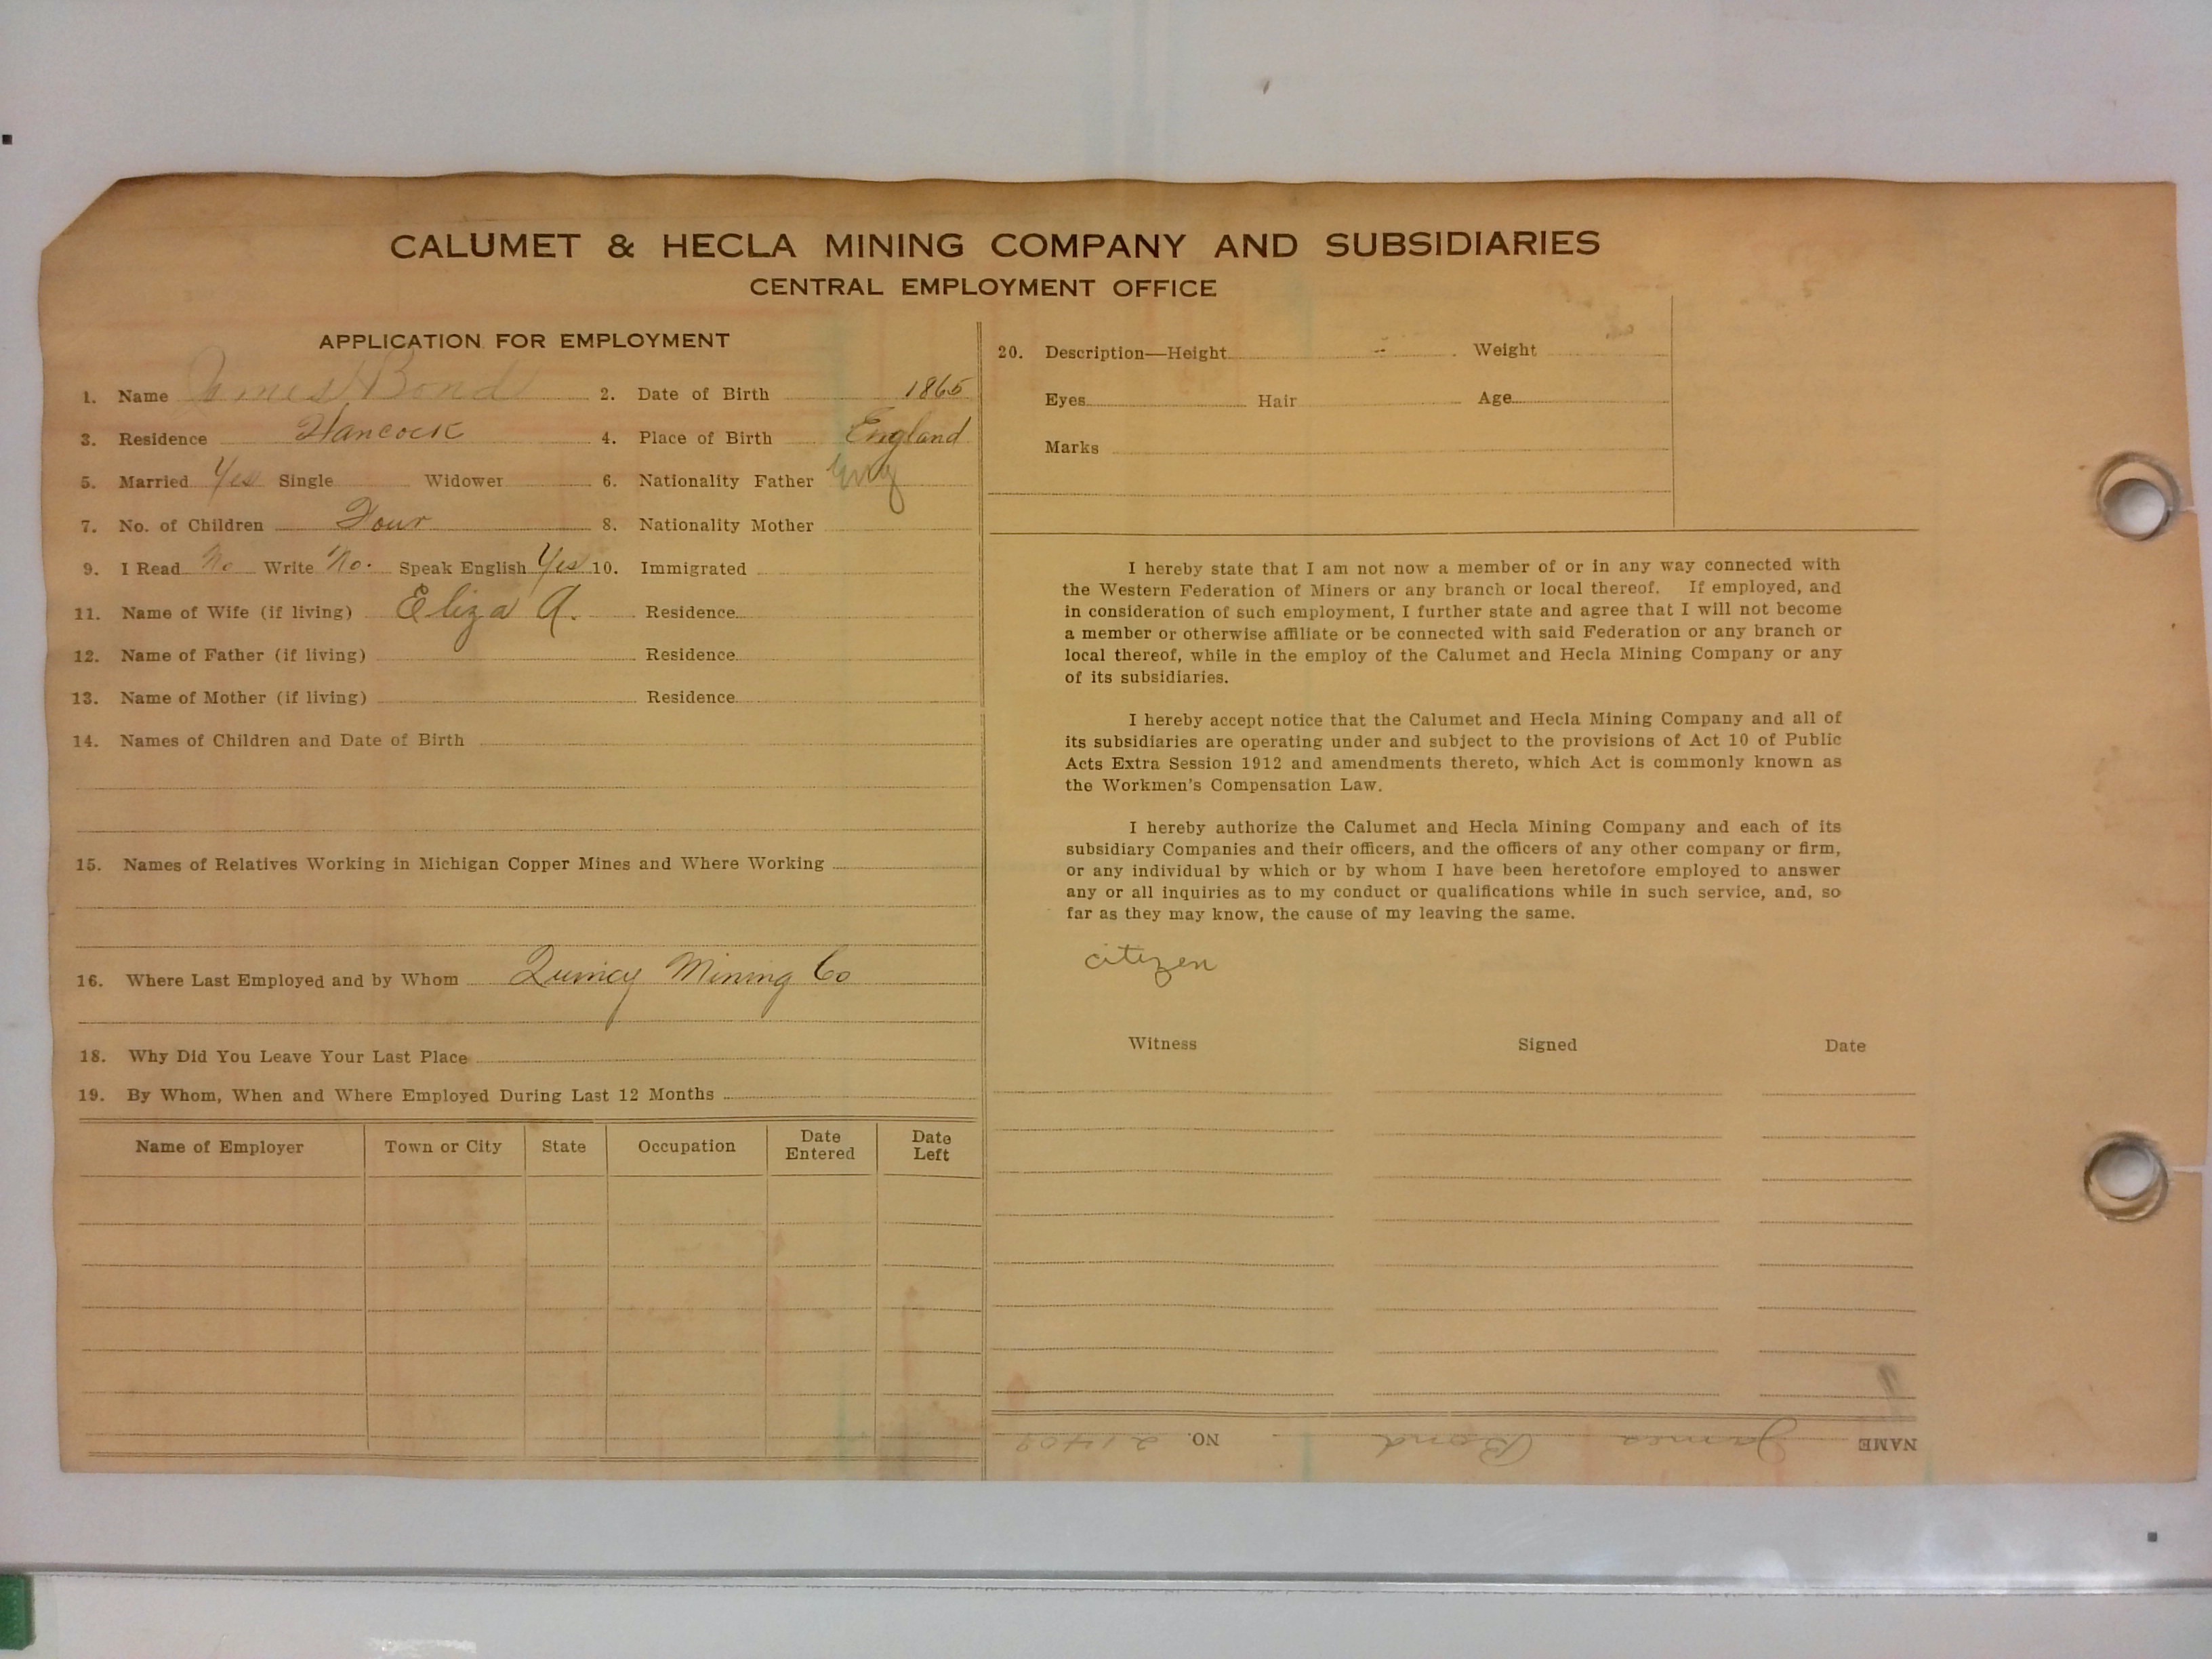 CALUMET & HECLA MINING COMPANY AND SUBSIDIARIES
CENTRAL EMPLOYMENT OFFICE
APPLICATION FOR EMPLOYMENT
1. Name James Bond 2. Date of Birth 1865
3. Residence Hancock 4. Place of Birth England
5. Married Yes Single Widower 6. Nationality Father Eng
7. No. of Children Four 8. Nationality Mother
9. I Read No Write No. Speak English Yes 10. Immigrated
11. Name of Wife (if living) Eliza A. Residence
12. Name of Father (if living) Residence
13. Name of Mother (if living) Residence
14. Names of Children and Date of Birth
15. Names of Relatives Working in Michigan Copper Mines and Where Working
16. Where Last Employed and by Whom Quincy Mining Co
18. Why Did You Leave Your Last Place
19. By Whom, When and Where Employed During Last 12 Months
Name of Employer Town or City State Occupation Date Entered Date Left
20. Description—Height Weight
Eyes Hair Age
Marks
I hereby state that I am not now a member of or in any way connected with
the Western Federation of Miners or any branch or local thereof. If employed, and
in consideration of such employment, I further state and agree that I will not become
a member or otherwise affiliate or be connected with said Federation or any branch or
local thereof, while in the employ of the Calumet and Hecla Mining Company or any
of its subsidiaries.
I hereby accept notice that the Calumet and Hecla Mining Company and all of
its subsidiaries are operating under and subject to the provisions of Act 10 of Public
Acts Extra Session 1912 and amendments thereto, which Act is commonly known as
the Workmen's Compensation Law.
I hereby authorize the Calumet and Hecla Mining Company and each of its
subsidiary Companies and their officers, and the officers of any other company or firm,
or any individual by which or by whom I have been heretofore employed to answer
any or all inquiries as to my conduct or qualifications while in such service, and, so
far as they may know, the cause of my leaving the same.
citizen
Witness Signed Date
NAME James Bond NO. 21409